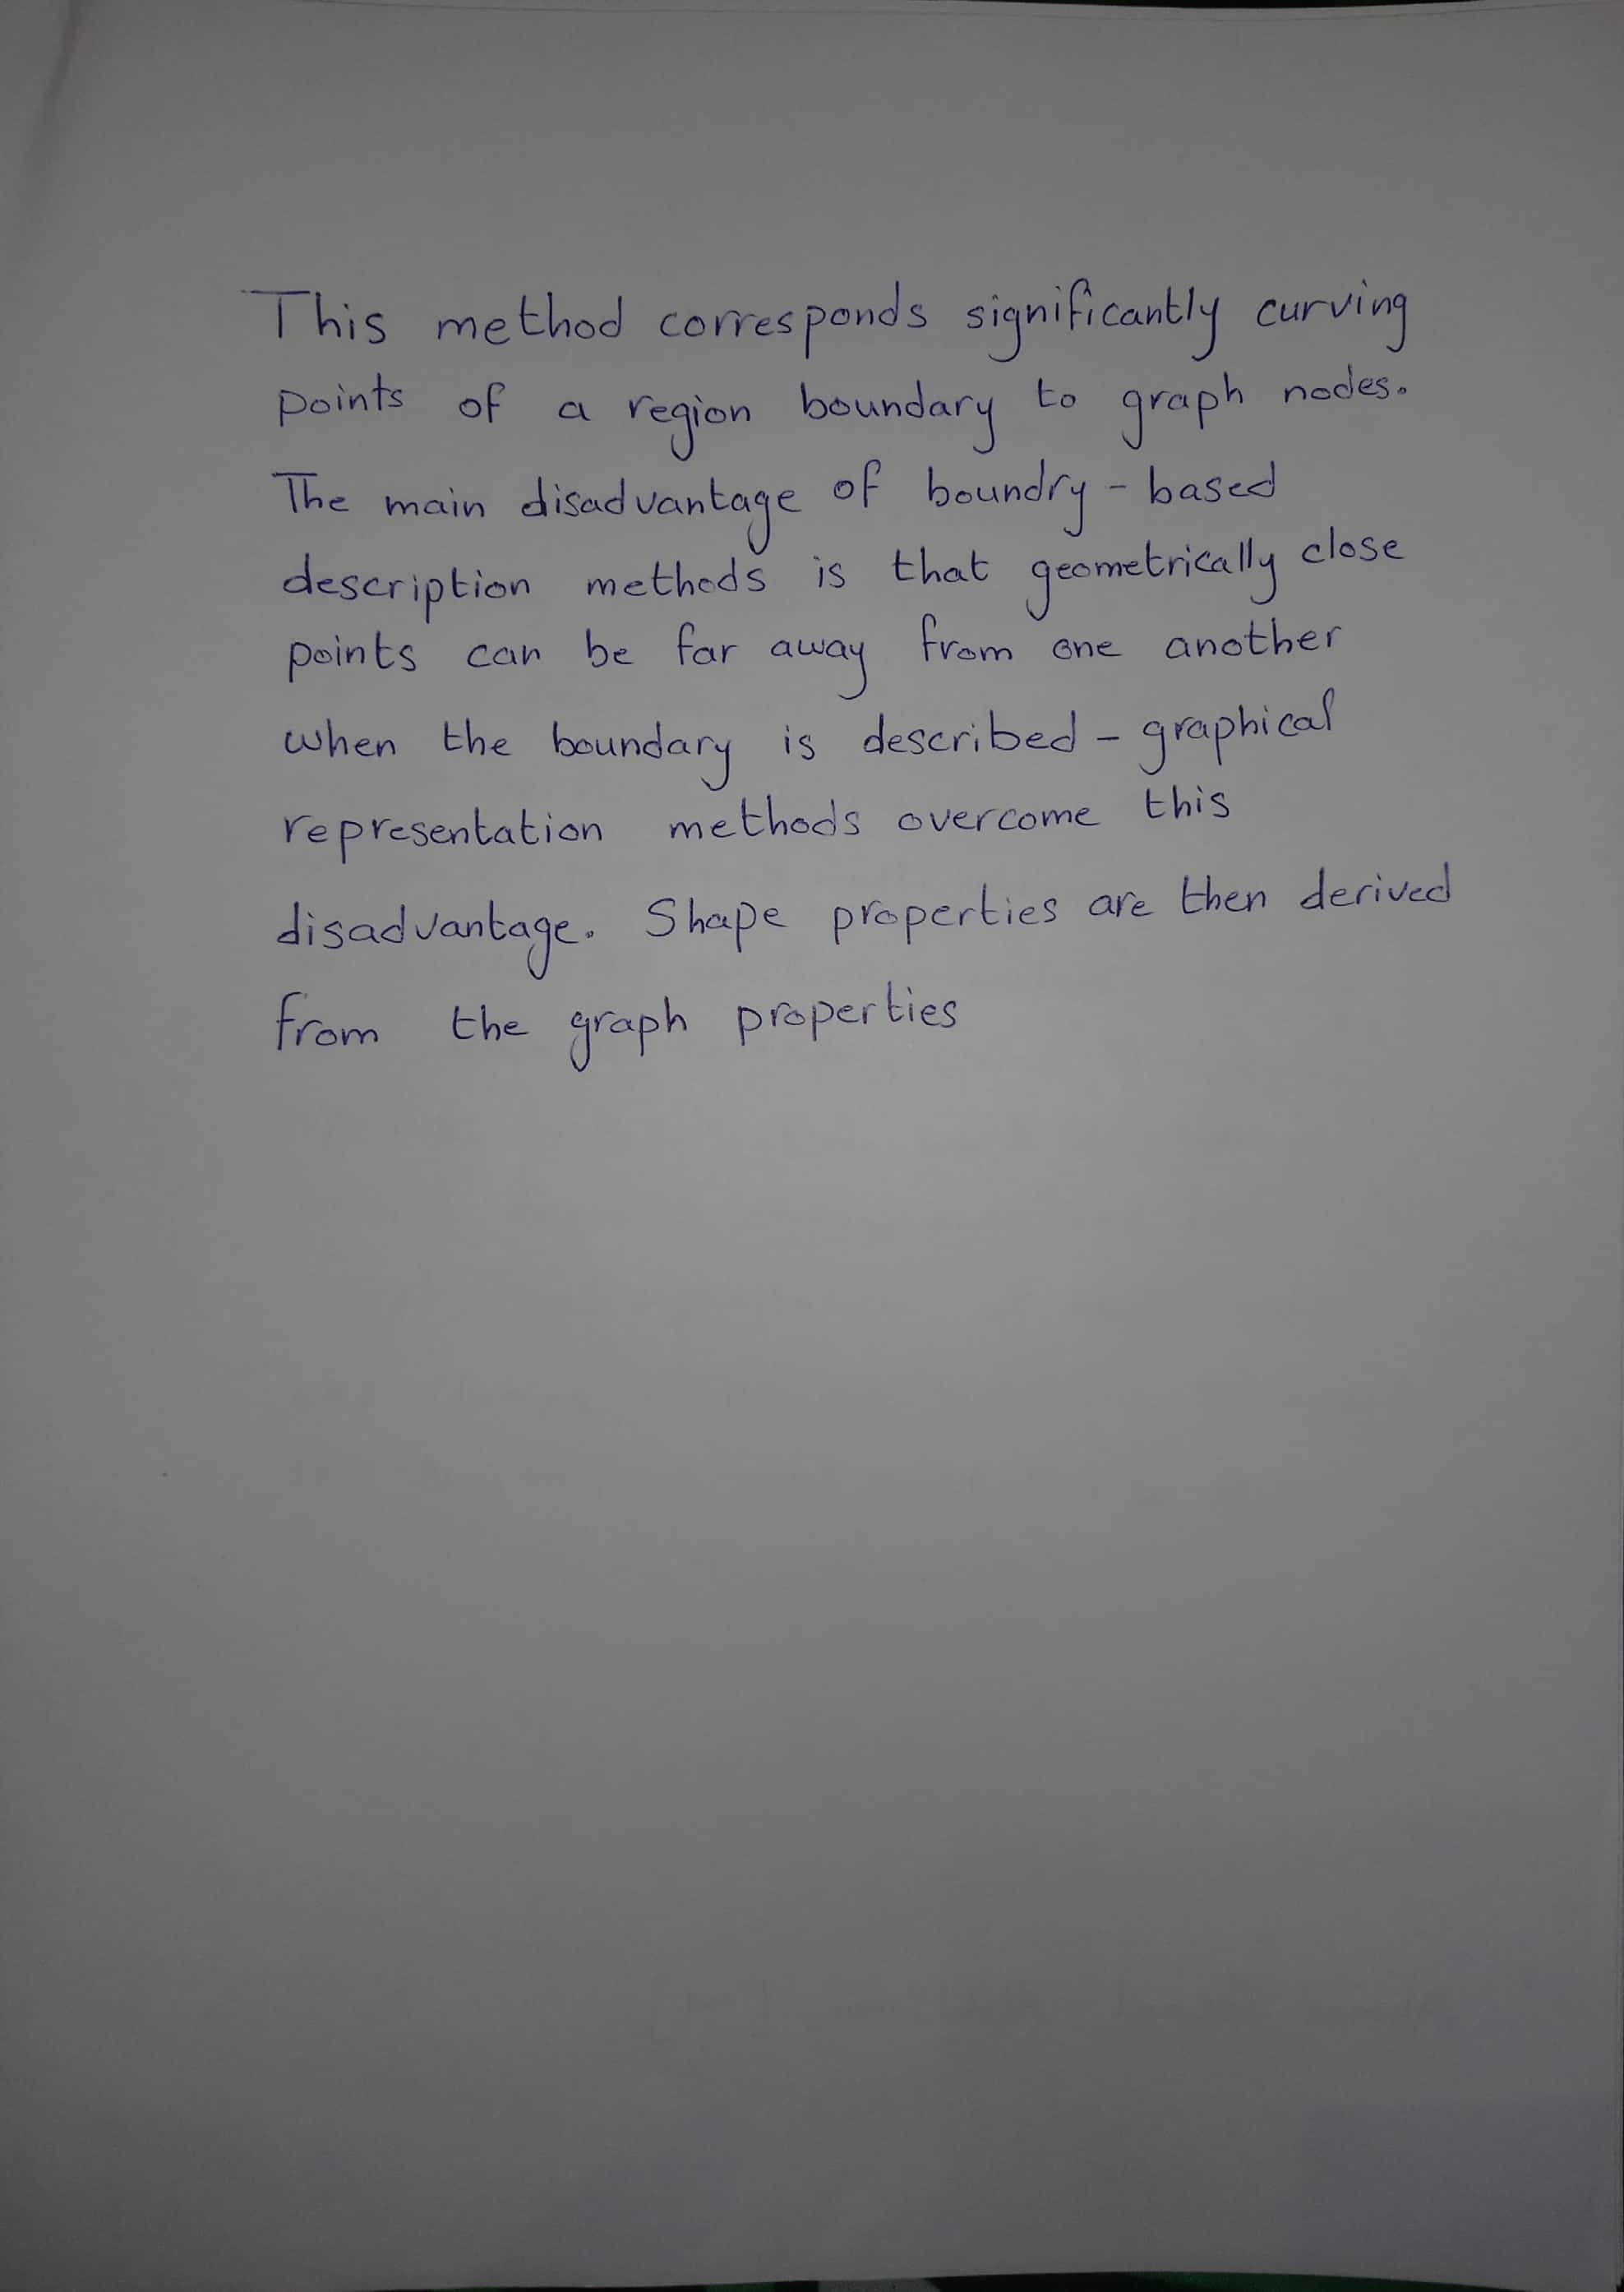 This method corresponds significantly curving
points of a region boundary to graph nodes.
The main disadvantage of boundry - based
description methods is that geometrically close
points can be far away from one another
when the boundary is described - graphical
representation methods overcome this
disadvantage. Shape properties are then derived
from the graph properties